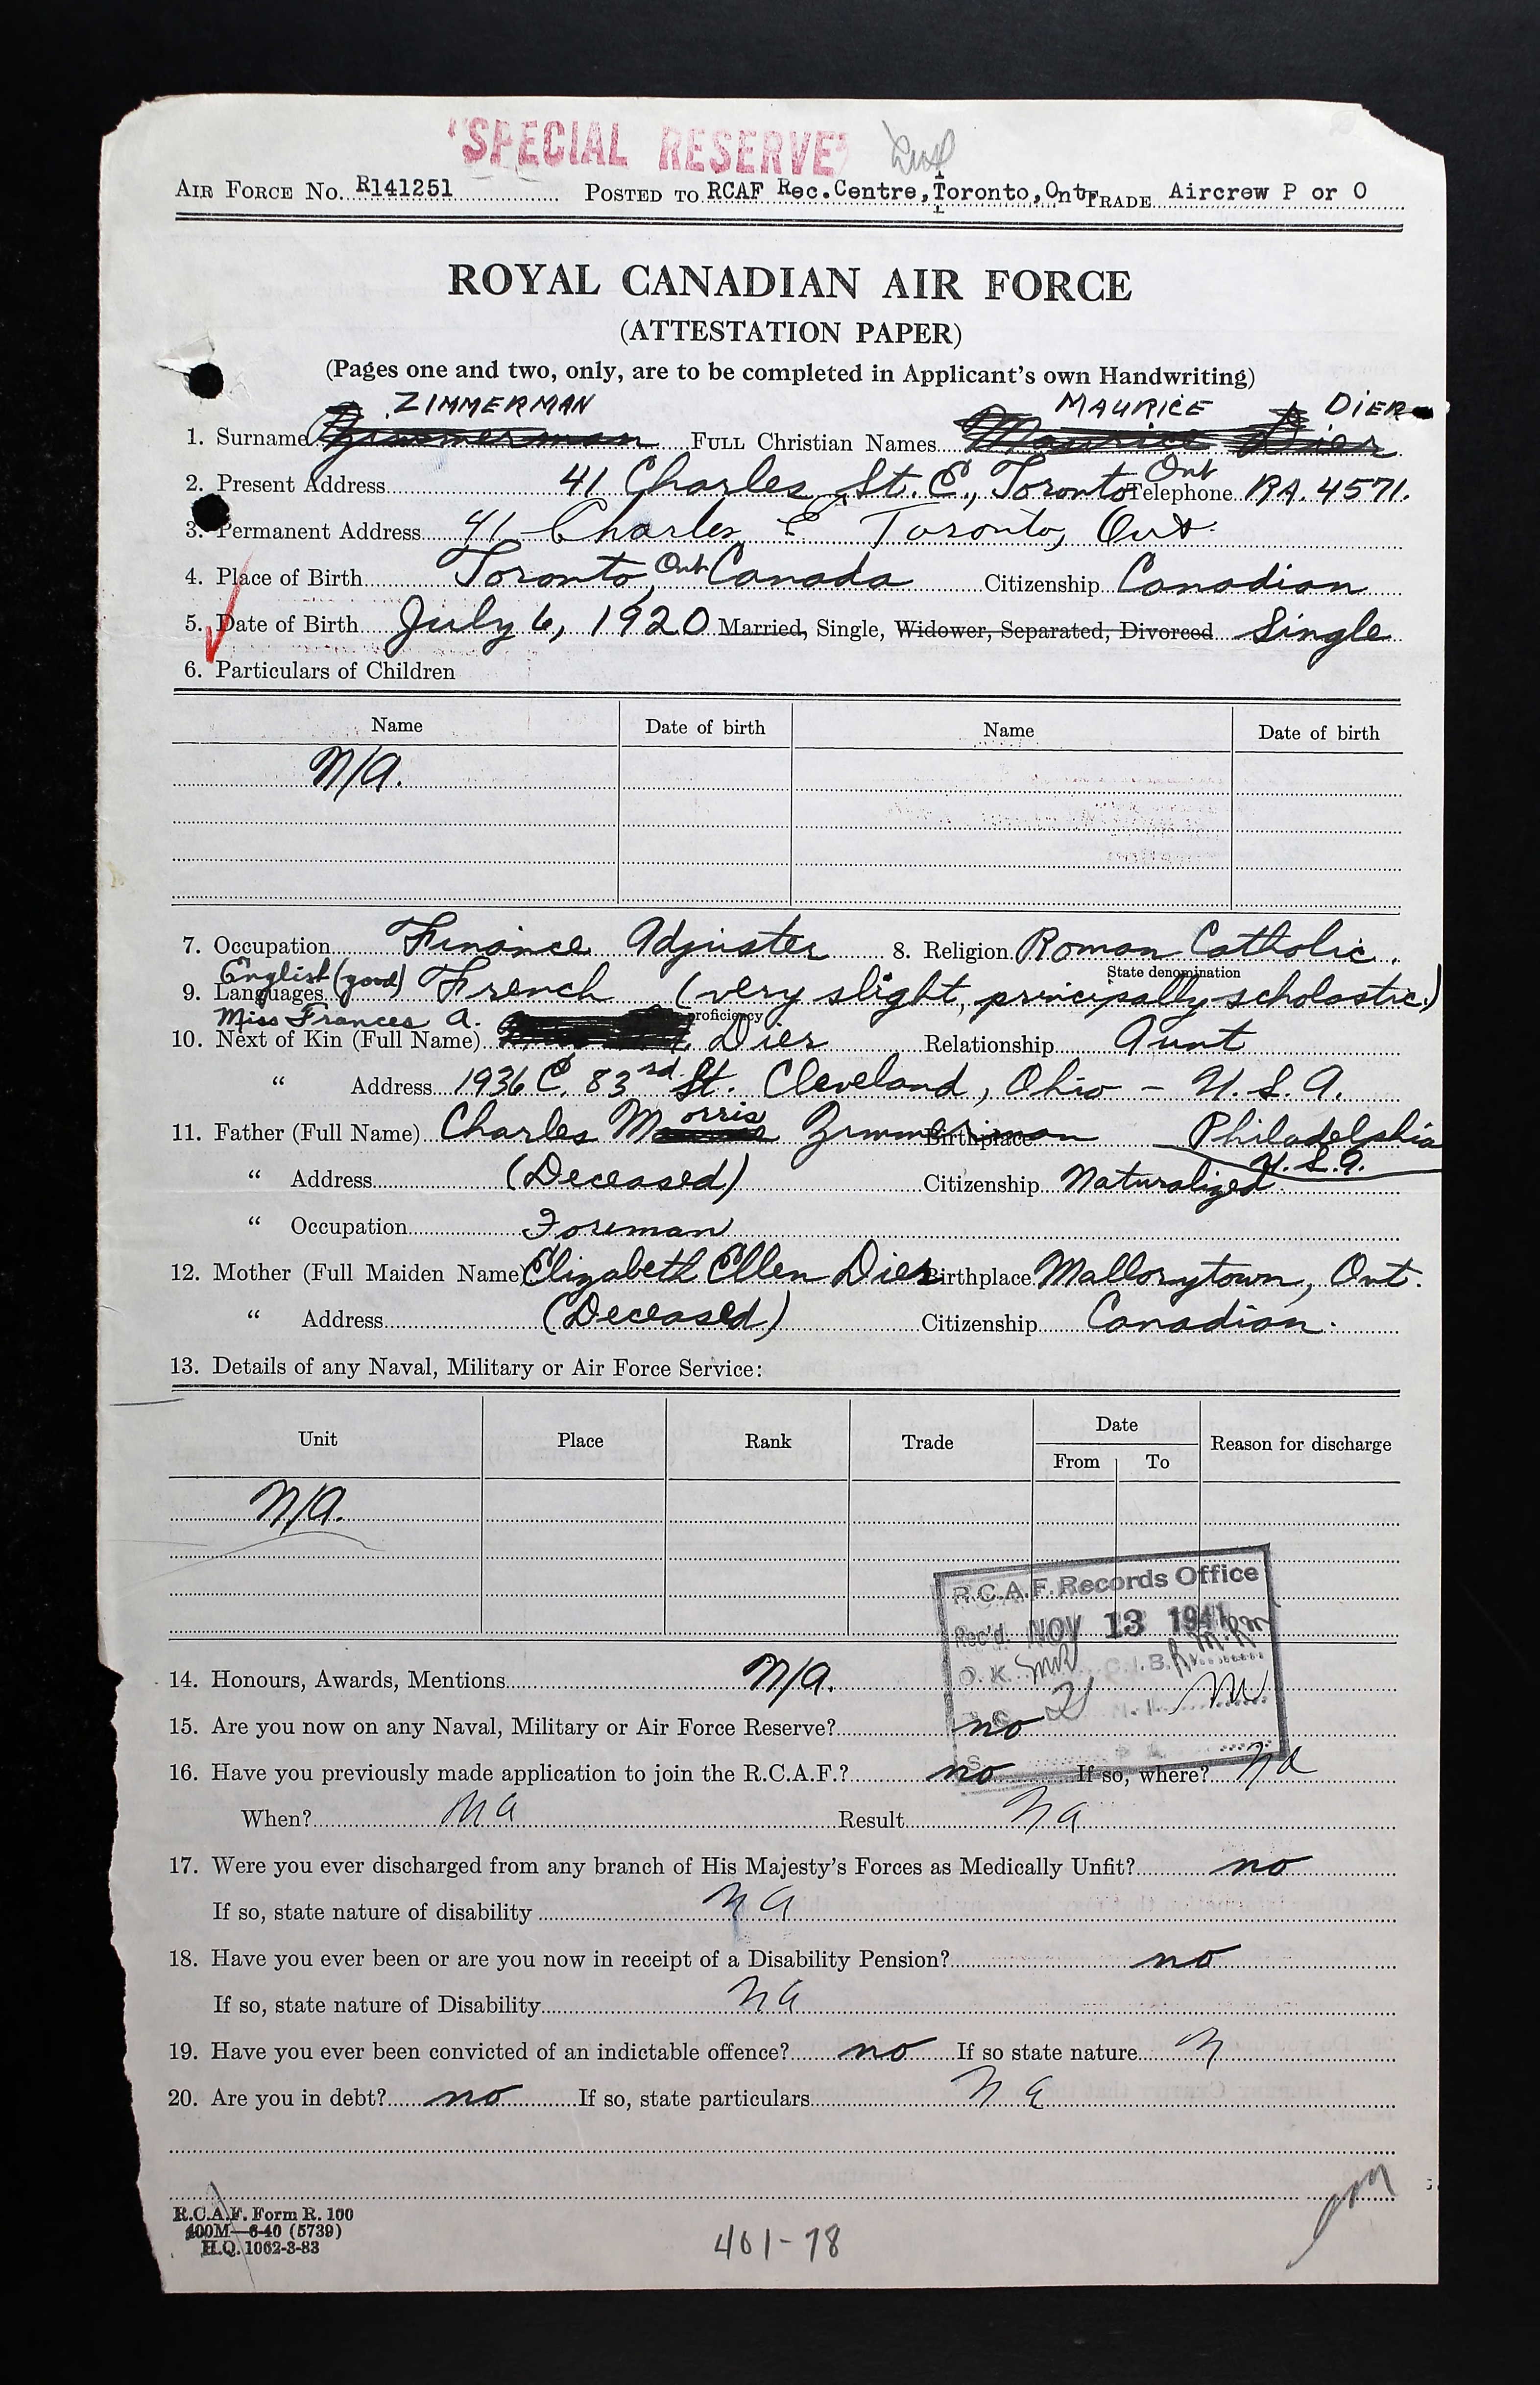 "SPECIAL RESERVE"
AIR FORCE NO. R141251 POSTED TO RCAF Rec.Centre, Toronto, Ont TRADE Aircrew P or O
ROYAL CANADIAN AIR FORCE
(ATTESTATION PAPER)
(Pages one and two, only, are to be completed in Applicant's own Handwriting)
ZIMMERMAN MAURICE DIER
1. Surname Zimmerman FULL Christian Names Maurice Dier
2. Present Address 41 Charles St. E., Toronto Ont Telephone RA. 4571.
3. Permanent Address 41 Charles E Toronto, Ont.
4. Place of Birth Toronto, Ont Canada Citizenship Canadian
5. Date of Birth July 6, 1920 Married, Single, Widower, Separated, Divorced Single
6. Particulars of Children
Name Date of birth Name Date of birth
N/A.
7. Occupation Finance Adjuster 8. Religion Roman Catholic.
State denomination
English (good)
9. Languages French (very slight, principally scholastic.)
proficiency
Miss Frances A.
10. Next of Kin (Full Name) Dier Relationship Aunt
" Address 1936 E. 83rd St. Cleveland, Ohio - U.S.A.
11. Father (Full Name) Charles Morris Zimmerman Birthplace Philadelphia
U.S.A.
" Address (Deceased) Citizenship Naturalized
" Occupation Foreman
12. Mother (Full Maiden Name) Elizabeth Ellen Dier Birthplace Mallorytown, Ont.
" Address (Deceased) Citizenship Canadian.
13. Details of any Naval, Military or Air Force Service:
Unit Place Rank Trade Date Reason for discharge
From To
N/A.
R.C.A.F. Records Office
Rec'd. NOV 13 1941
O.K. C.I.B.
14. Honours, Awards, Mentions N/A.
15. Are you now on any Naval, Military or Air Force Reserve? no
16. Have you previously made application to join the R.C.A.F.? no If so, where? na
When? na Result na
17. Were you ever discharged from any branch of His Majesty's Forces as Medically Unfit? no
If so, state nature of disability na
18. Have you ever been or are you now in receipt of a Disability Pension? no
If so, state nature of Disability na
19. Have you ever been convicted of an indictable offence? no If so state nature n
20. Are you in debt? no If so, state particulars na
R.C.A.F. Form R. 100
400M—6-40 (5739)
H.Q. 1062-3-83
401-78